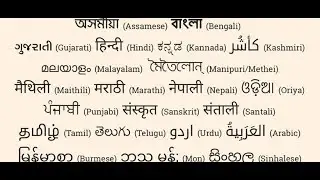 অসমীয়া (Assamese) বাংলা (Bengali)
ગુજરાતી (Gujarati) हिन्दी (Hindi) ಕನ್ನಡ (Kannada) كٲشُر (Kashmiri)
മലയാളം (Malayalam) মৈতৈলোন্ (Manipuri/Methei)
मैथिली (Maithili) मराठी (Marathi) नेपाली (Nepali) ଓଡ଼ିଆ (Oriya)
ਪੰਜਾਬੀ (Punjabi) संस्कृत (Sanskrit) संताली (Santali)
தமிழ் (Tamil) తెలుగు (Telugu) اردو (Urdu) العَرَبِيةُ (Arabic)
မြန်မာစာ (Burmese) ဘာသ မန် (Mon) සිංහල (Sinhalese)